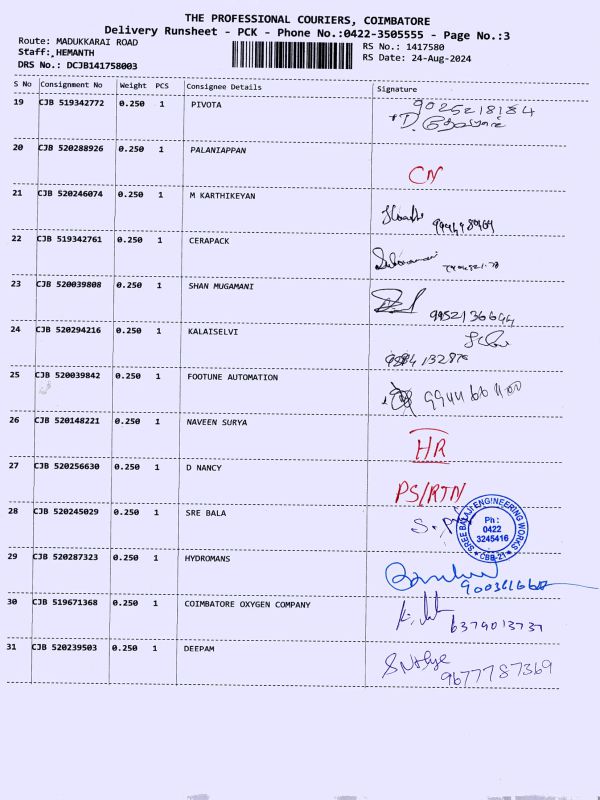 THE PROFESSIONAL COURIERS, COIMBATORE
Delivery Runsheet - PCK - Phone No.:0422-3505555 - Page No.:3
Route: MADUKKARAI ROAD
RS No.: 1417580
Staff: HEMANTH
RS Date: 24-Aug-2024
DRS No.: DCJB141758003
S No Consignment No Weight PCS Consignee Details Signature
19 CJB 519342772 0.250 1 PIVOTA 9025218184
20 CJB 520288926 0.250 1 PALANIAPPAN CN
21 CJB 520246074 0.250 1 M KARTHIKEYAN
22 CJB 519342761 0.250 1 CERAPACK
23 CJB 520039808 0.250 1 SHAN MUGAMANI 9952136644
24 CJB 520294216 0.250 1 KALAISELVI
25 CJB 520039842 0.250 1 FOOTUNE AUTOMATION
26 CJB 520148221 0.250 1 NAVEEN SURYA HR
27 CJB 520256630 0.250 1 D NANCY PS/RTN
28 CJB 520245029 0.250 1 SRE BALA
SREE BALAJI ENGINEERING WORKS
Ph:
0422
3245416
CBE-21
29 CJB 520287323 0.250 1 HYDROMANS
30 CJB 519671368 0.250 1 COIMBATORE OXYGEN COMPANY 6379013737
31 CJB 520239503 0.250 1 DEEPAM 9677787369